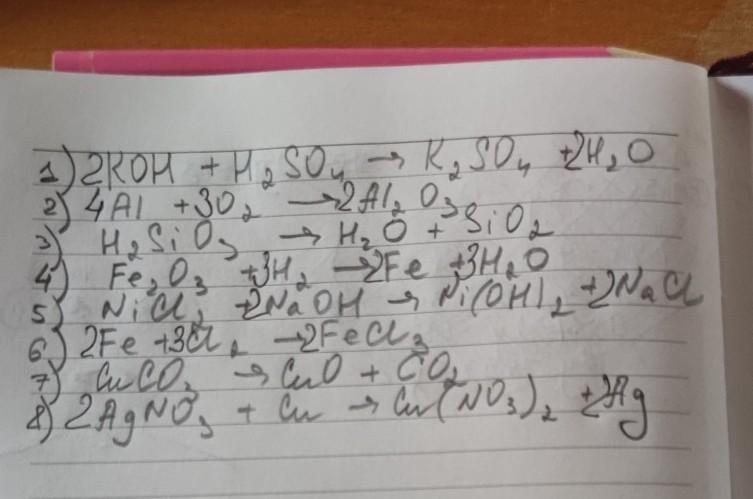 1) 2KOH + H₂SO₄ → K₂SO₄ + 2H₂O
2) 4Al + 3O₂ → 2Al₂O₃
3) H₂SiO₃ → H₂O + SiO₂
4) Fe₂O₃ + 3H₂ → 2Fe + 3H₂O
5) NiCl₂ + 2NaOH → Ni(OH)₂ + 2NaCl
6) 2Fe + 3Cl₂ → 2FeCl₃
7) CuCO₃ → CuO + CO₂
8) 2AgNO₃ + Cu → Cu(NO₃)₂ + 2Ag